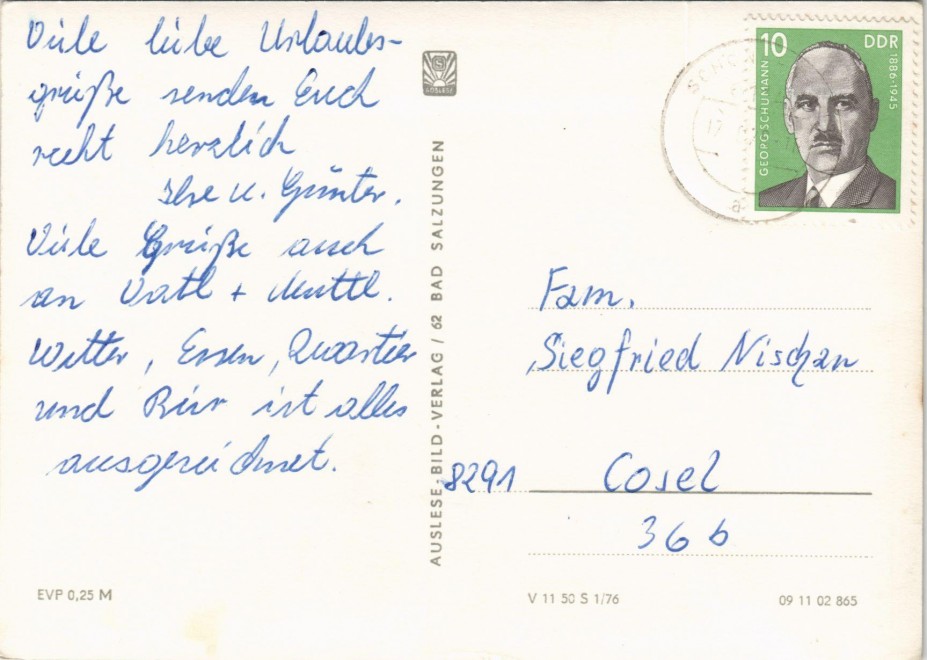 Viele liebe Urlaubs-
grüße senden Euch
recht herzlich
Ilse u. Günter.
Viele Grüße auch
an Vatl + Muttl.
Wetter, Essen, Quartier
und Bier ist alles
ausgezeichnet.
AUSLESE-BILD-VERLAG / 62 BAD SALZUNGEN
10
DDR
GEORG SCHUMANN
1886-1945
Fam.
Siegfried Nischan
8291 Cosel
36 b
EVP 0,25 M
V 11 50 S 1/76
09 11 02 865